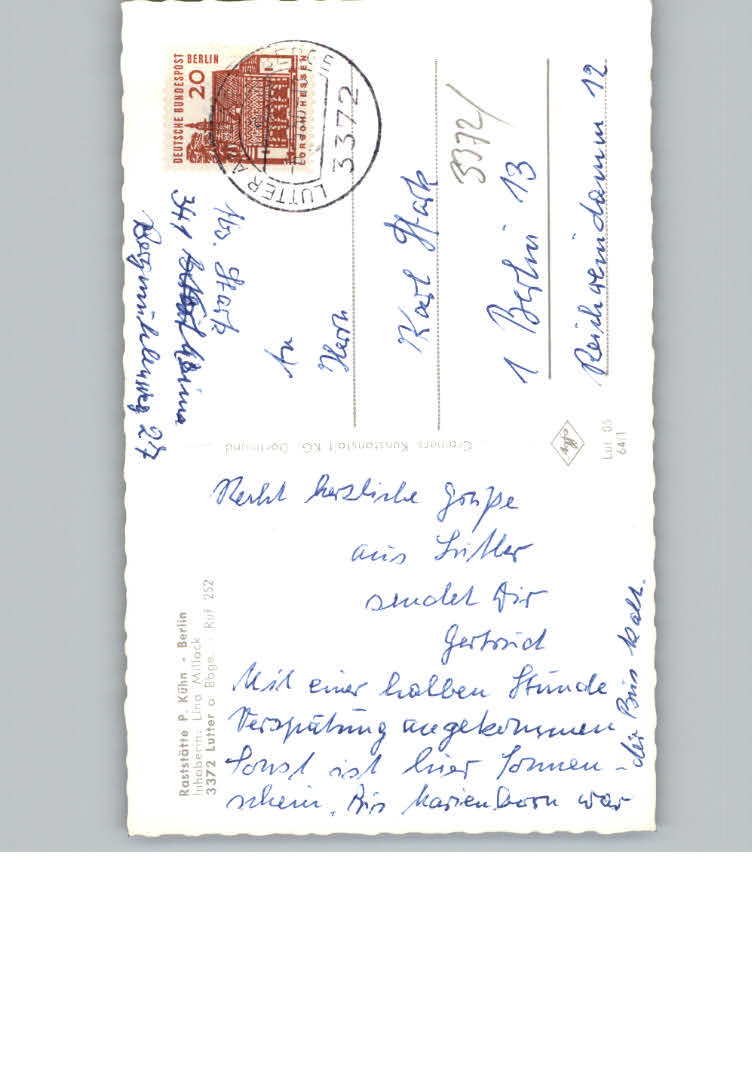 Recht herzliche Grüße
aus Lutter
sendet Dir
Gertrud
Mit einer halben Stunde
Verspätung angekommen
Sonst ist hier Sonnen-
schein. Bis Marienborn war
der Bus kalt.
Raststätte P. Kühn - Berlin
Inhaberin: Lina Millack
3372 Lutter a. Bbge. Ruf 252
Cramers Kunstanstalt KG, Dortmund
DEUTSCHE BUNDESPOST BERLIN
20
LORSCH/HESSEN
LUTTER A
3372
Abs. Stark
341
Bergmühlenweg 27
An
Herrn
Karl Stark
3372/
1 Berlin 13
Reichweindamm 12
Lut 05
64/1